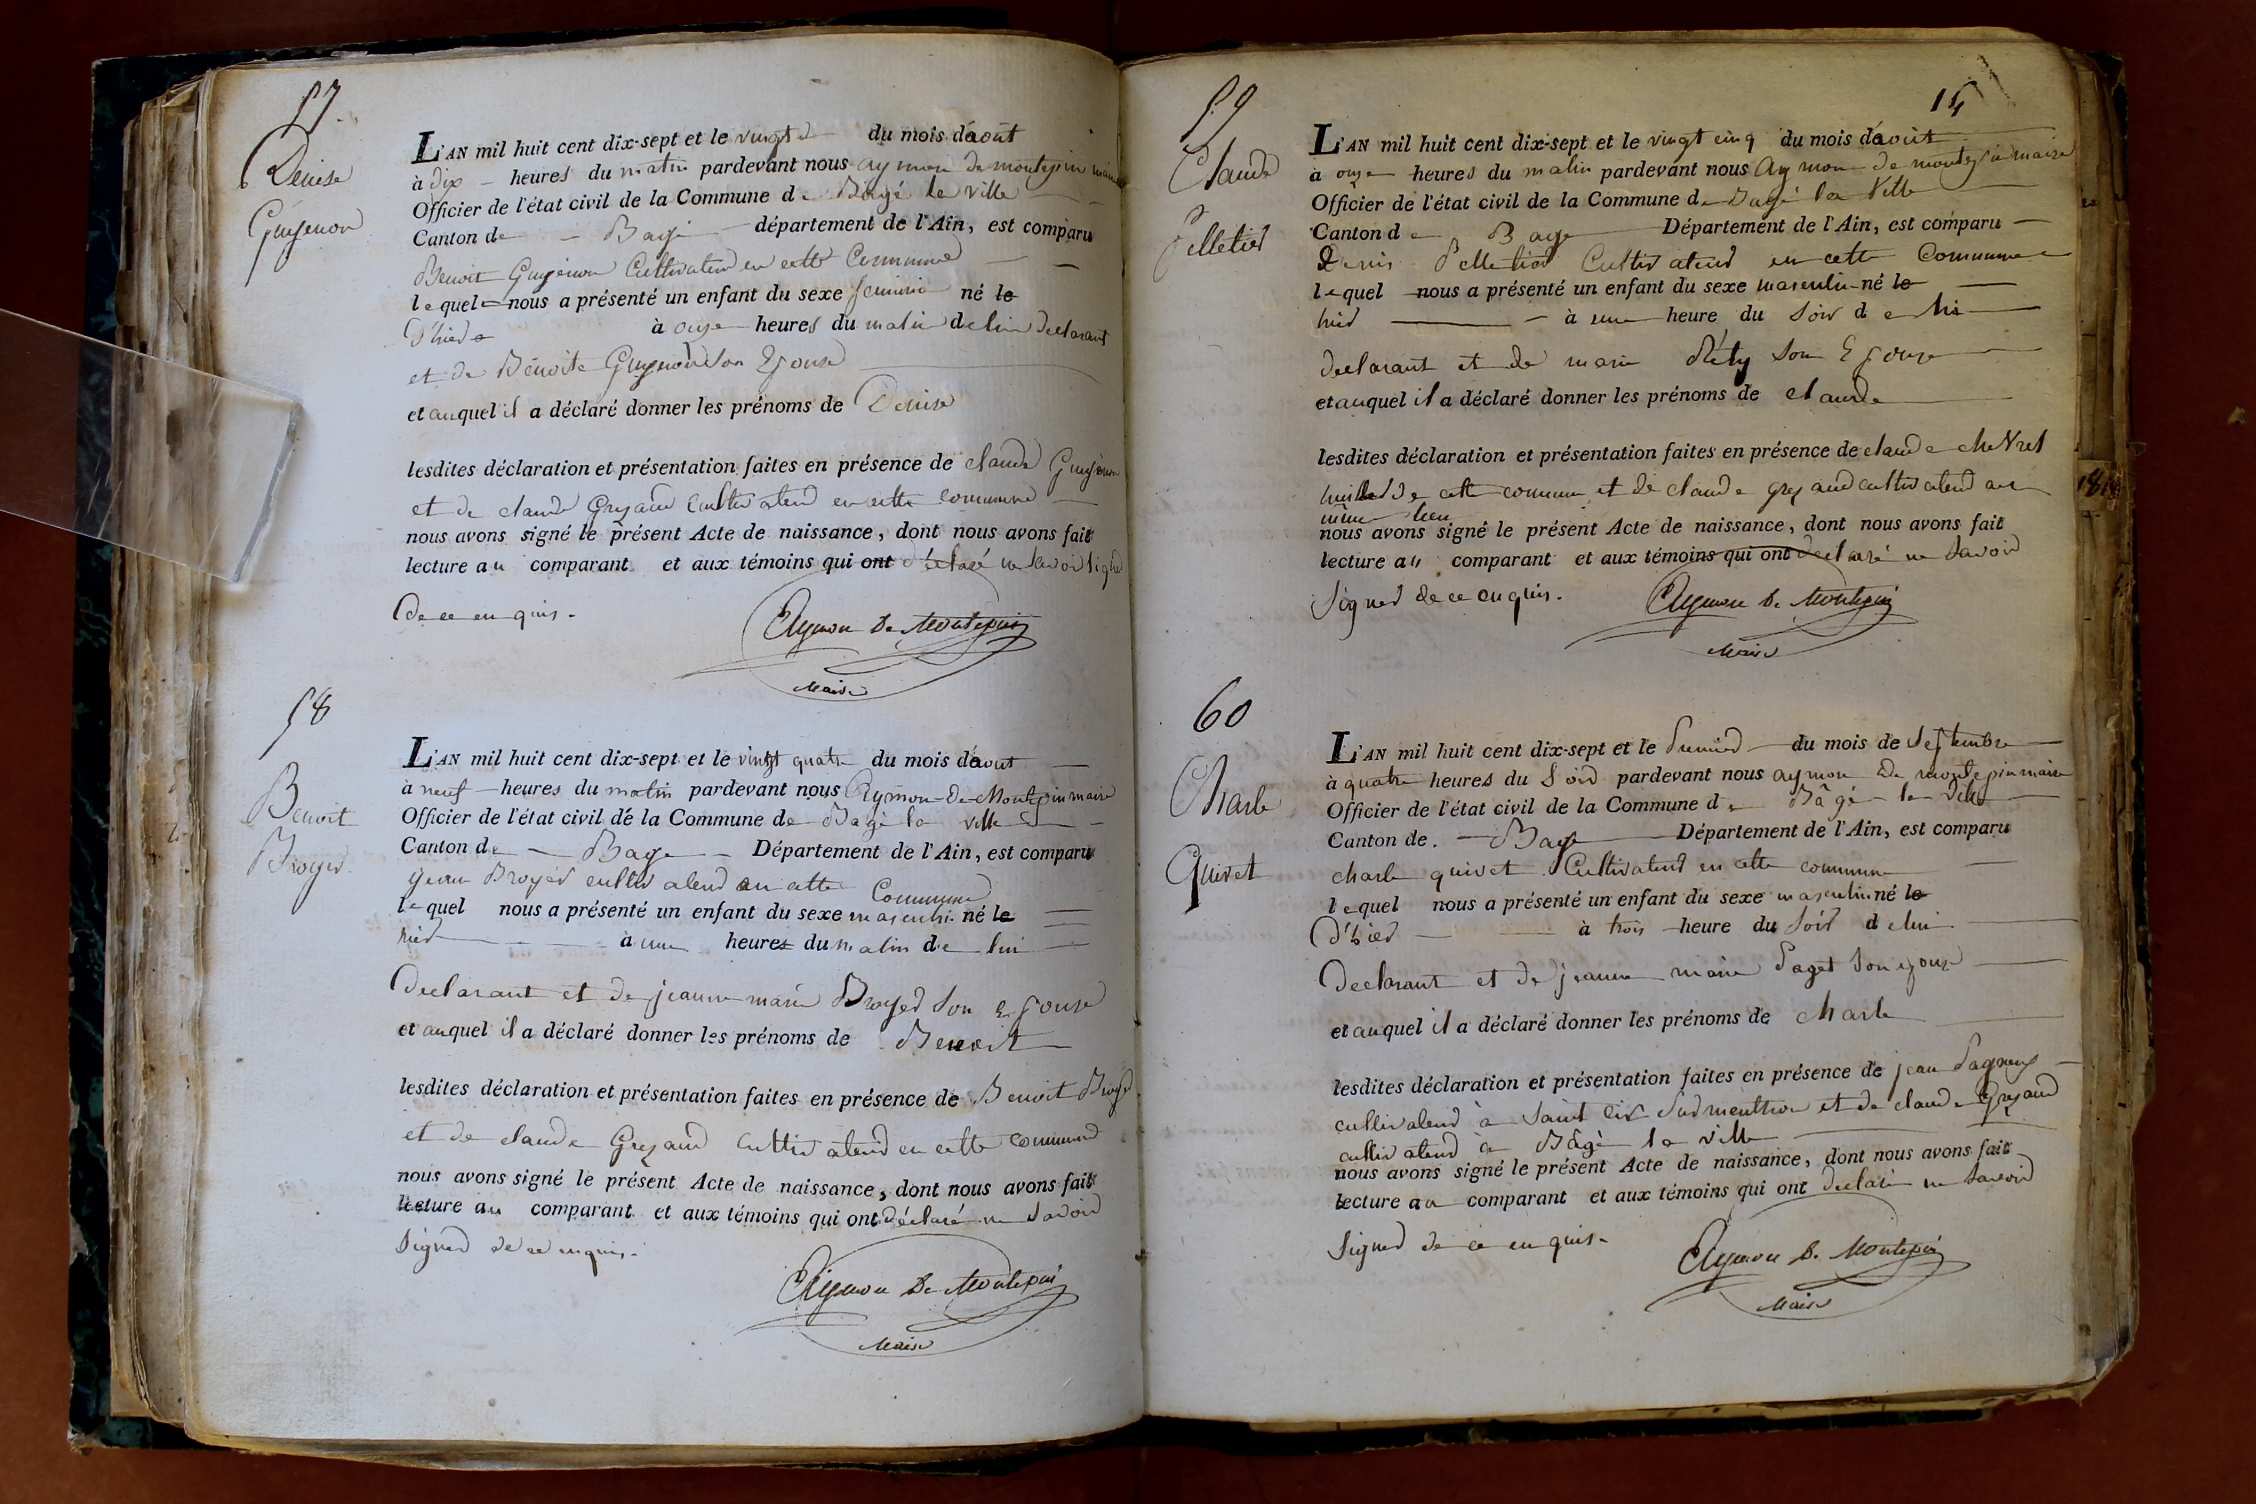 57
Denise
Guyenon
L'AN mil huit cent dix-sept et le vingt du mois d'août
à dix heures du matin pardevant nous aymon de montepin maire
Officier de l'état civil de la Commune de Bâgé la ville
Canton de Bagé département de l'Ain, est comparu
Benoit Guyenon Cultivateur en cette Commune
lequel nous a présenté un enfant du sexe feminin né le
D'hier à onze heures du matin de lui declarant
et de Benoite Guyenon son Epouse
et auquel il a déclaré donner les prénoms de Denise
lesdites déclaration et présentation faites en présence de claude Guyenon
et de claude Greyaud Cultivateur en cette commune
nous avons signé le présent Acte de naissance, dont nous avons fait
lecture au comparant et aux témoins qui ont déclaré ne savoir signer
de ce enquis.
Aymon De Montepin
Maire
58
Benoit
Broyer
L'AN mil huit cent dix-sept et le vingt quatre du mois d'aout
à neuf heures du matin pardevant nous Aymon De Montepin maire
Officier de l'état civil de la Commune de Bagé la ville
Canton de Bage Département de l'Ain, est comparu
jean Broyer cultivateur en cette Commune
lequel nous a présenté un enfant du sexe masculin né le
hier à une heures du matin de lui
Declarant et de jeanne marie Broyer son Epouse
et auquel il a déclaré donner les prénoms de Benoit
lesdites déclaration et présentation faites en présence de Benoit Broyer
et de claude Greyaud cultivateur en cette commune
nous avons signé le présent Acte de naissance, dont nous avons fait
lecture au comparant et aux témoins qui ont déclaré ne savoir
signer de ce enquis.
Aymon De Montepin
Maire
15
59
Claude
Pelletier
L'AN mil huit cent dix-sept et le vingt cinq du mois d'août
à onze heures du matin pardevant nous Aymon de montepin maire
Officier de l'état civil de la Commune de Bagé la Ville
Canton de Bage Département de l'Ain, est comparu
Denis Pelletier Cultivateur en cette Commune
lequel nous a présenté un enfant du sexe masculin né le
hier à une heure du soir de lui
declarant et de marie Réty son Epouse
et auquel il a déclaré donner les prénoms de claude
lesdites déclaration et présentation faites en présence de claude chevrel
huillier de cette commune et de claude greyaud cultivateur au
même lieu
nous avons signé le présent Acte de naissance, dont nous avons fait
lecture au comparant et aux témoins qui ont declaré ne savoir
signer de ce enquis.
Aymon De Montepin
Maire
60
Charle
Quivet
L'AN mil huit cent dix-sept et le Premier du mois de septembre
à quatre heures du Soir pardevant nous aymon De montepin maire
Officier de l'état civil de la Commune de Bâgé la ville
Canton de Bage Département de l'Ain, est comparu
charle quivet Cultivateur en cette commune
lequel nous a présenté un enfant du sexe masculin né le
d'hier à trois heure du soir de lui
Declarant et de jeanne marie Paget son epouse
et auquel il a déclaré donner les prénoms de charle
lesdites déclaration et présentation faites en présence de jean
cultivateur à Saint cir Sur menthon et de claude Greyaud
cultivateur à Bâgé la ville
nous avons signé le présent Acte de naissance, dont nous avons fait
lecture au comparant et aux témoins qui ont declaré ne savoir
signer de ce enquis.
Aymon De Montepin
Maire